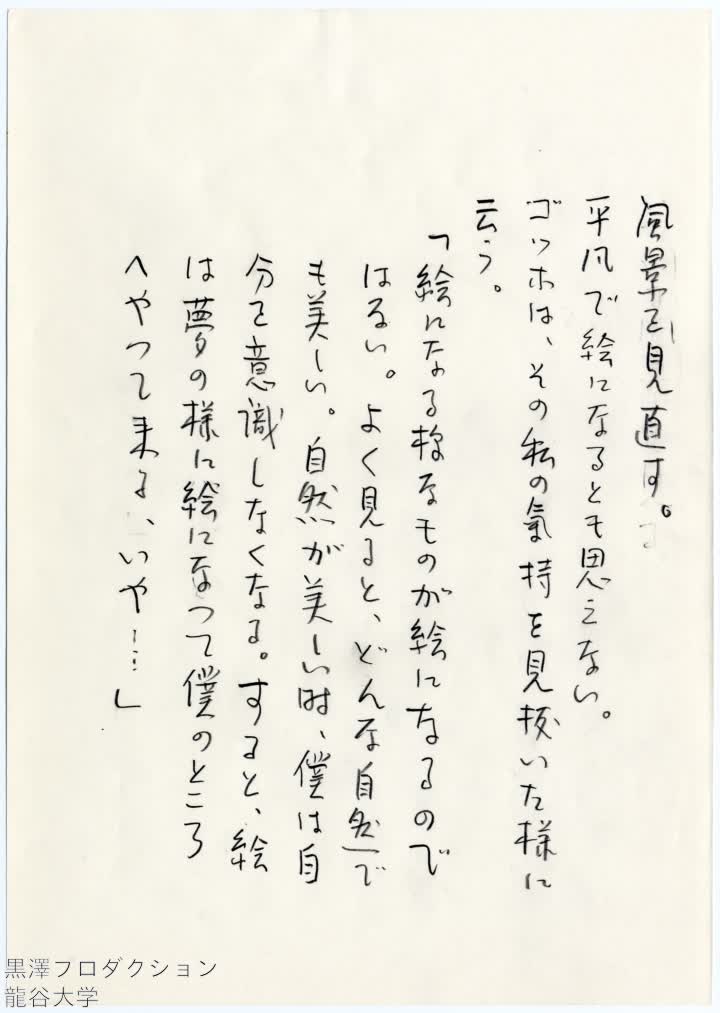 風景を見直す。
平凡で絵になるとも思えない。
ゴッホは、その私の氣持を見抜いた様に
云う。
「絵になる様なものが絵になるので
はない。よく見ると、どんな自然で
も美しい。自然が美しい時、僕は自
分を意識しなくなる。すると、絵
は夢の様に絵になって僕のところ
へやって来る、いや……」
黒澤プロダクション
龍谷大学